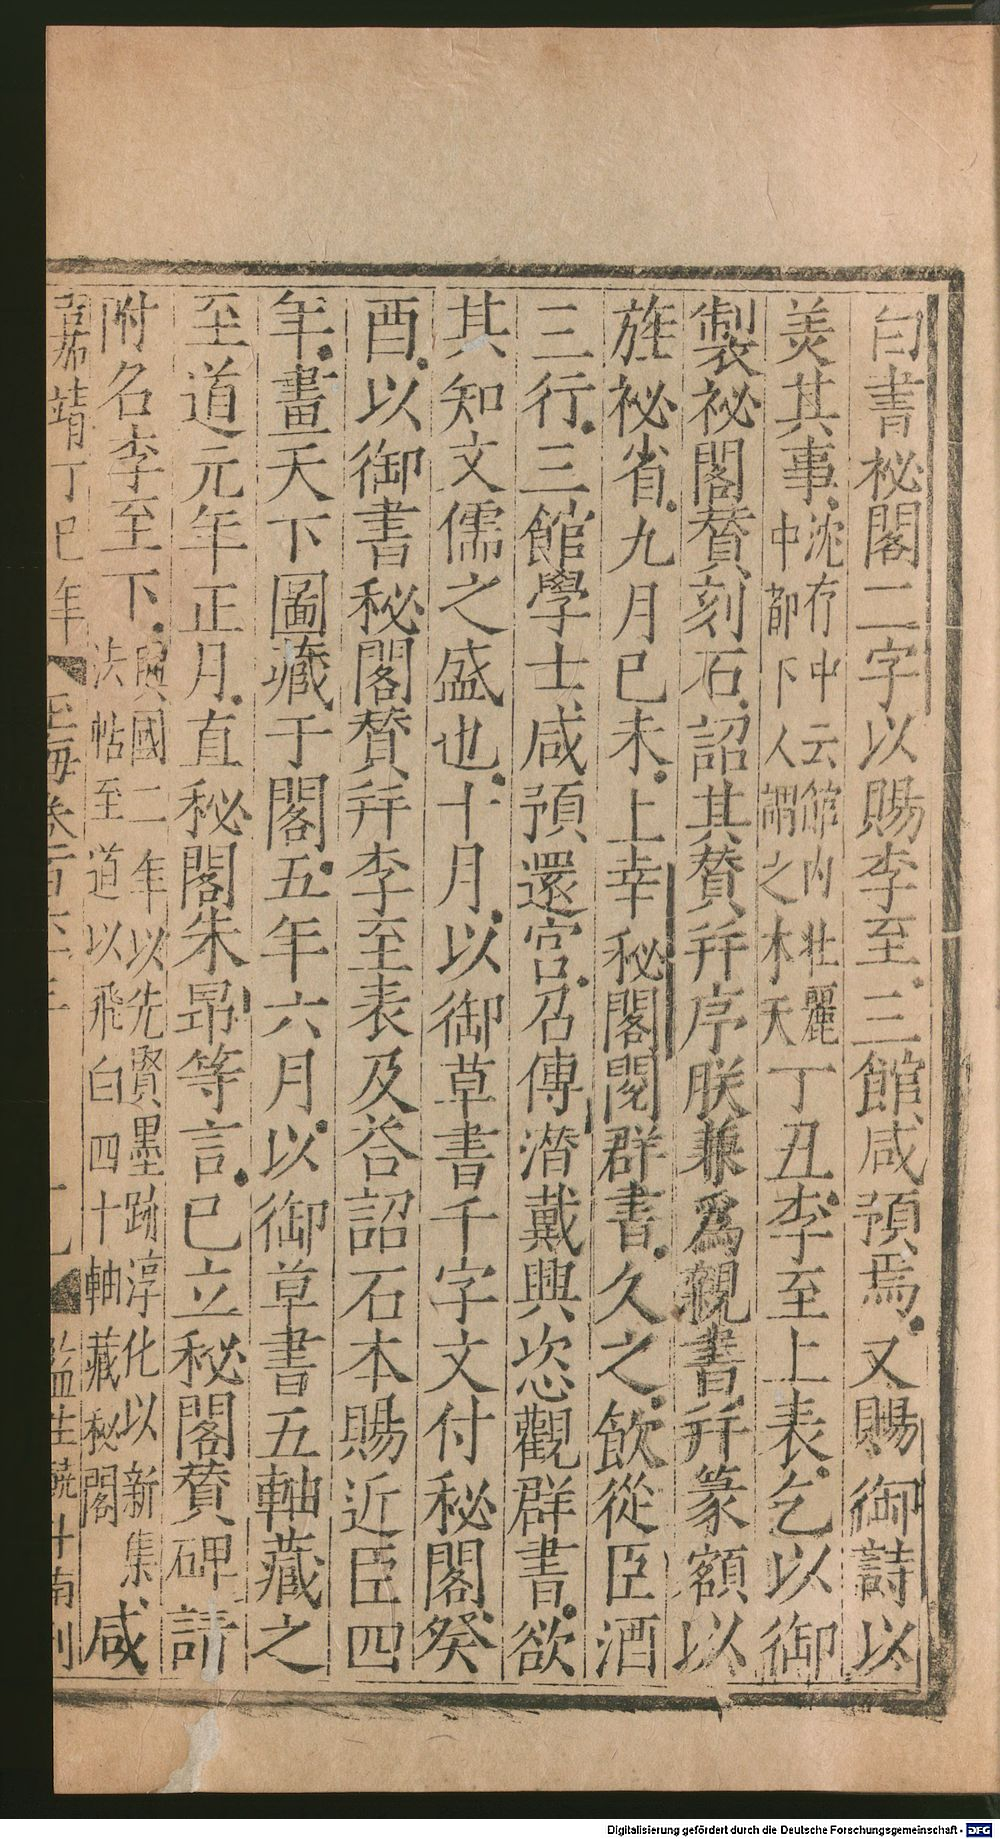 白書祕閣二字以賜李至三館咸預焉又賜御詩以
美其事沈存中云館内壯麗中都下人謂之木天丁丑李至上表乞以御
製祕閣賛刻石詔其賛并序朕兼爲親書并篆額以
旌祕省九月已未上幸秘閣閱群書久之飲從臣酒
三行三館學士咸預還宮召傅潜戴興恣觀群書欲
其知文儒之盛也十月以御草書千字文付秘閣癸
酉以御書秘閣賛并李至表及荅詔石本賜近臣四
年畫天下圖藏于閣五年六月以御草書五軸藏之
至道元年正月直秘閣朱昂等言已立秘閣賛碑請
附名李至下興國二年以先賢墨跡淳化以新集法帖至道以飛白四十軸藏秘閣咸
嘉靖丁巳年 玉海卷 監生饒 南刊
Digitalisierung gefördert durch die Deutsche Forschungsgemeinschaft - DFG